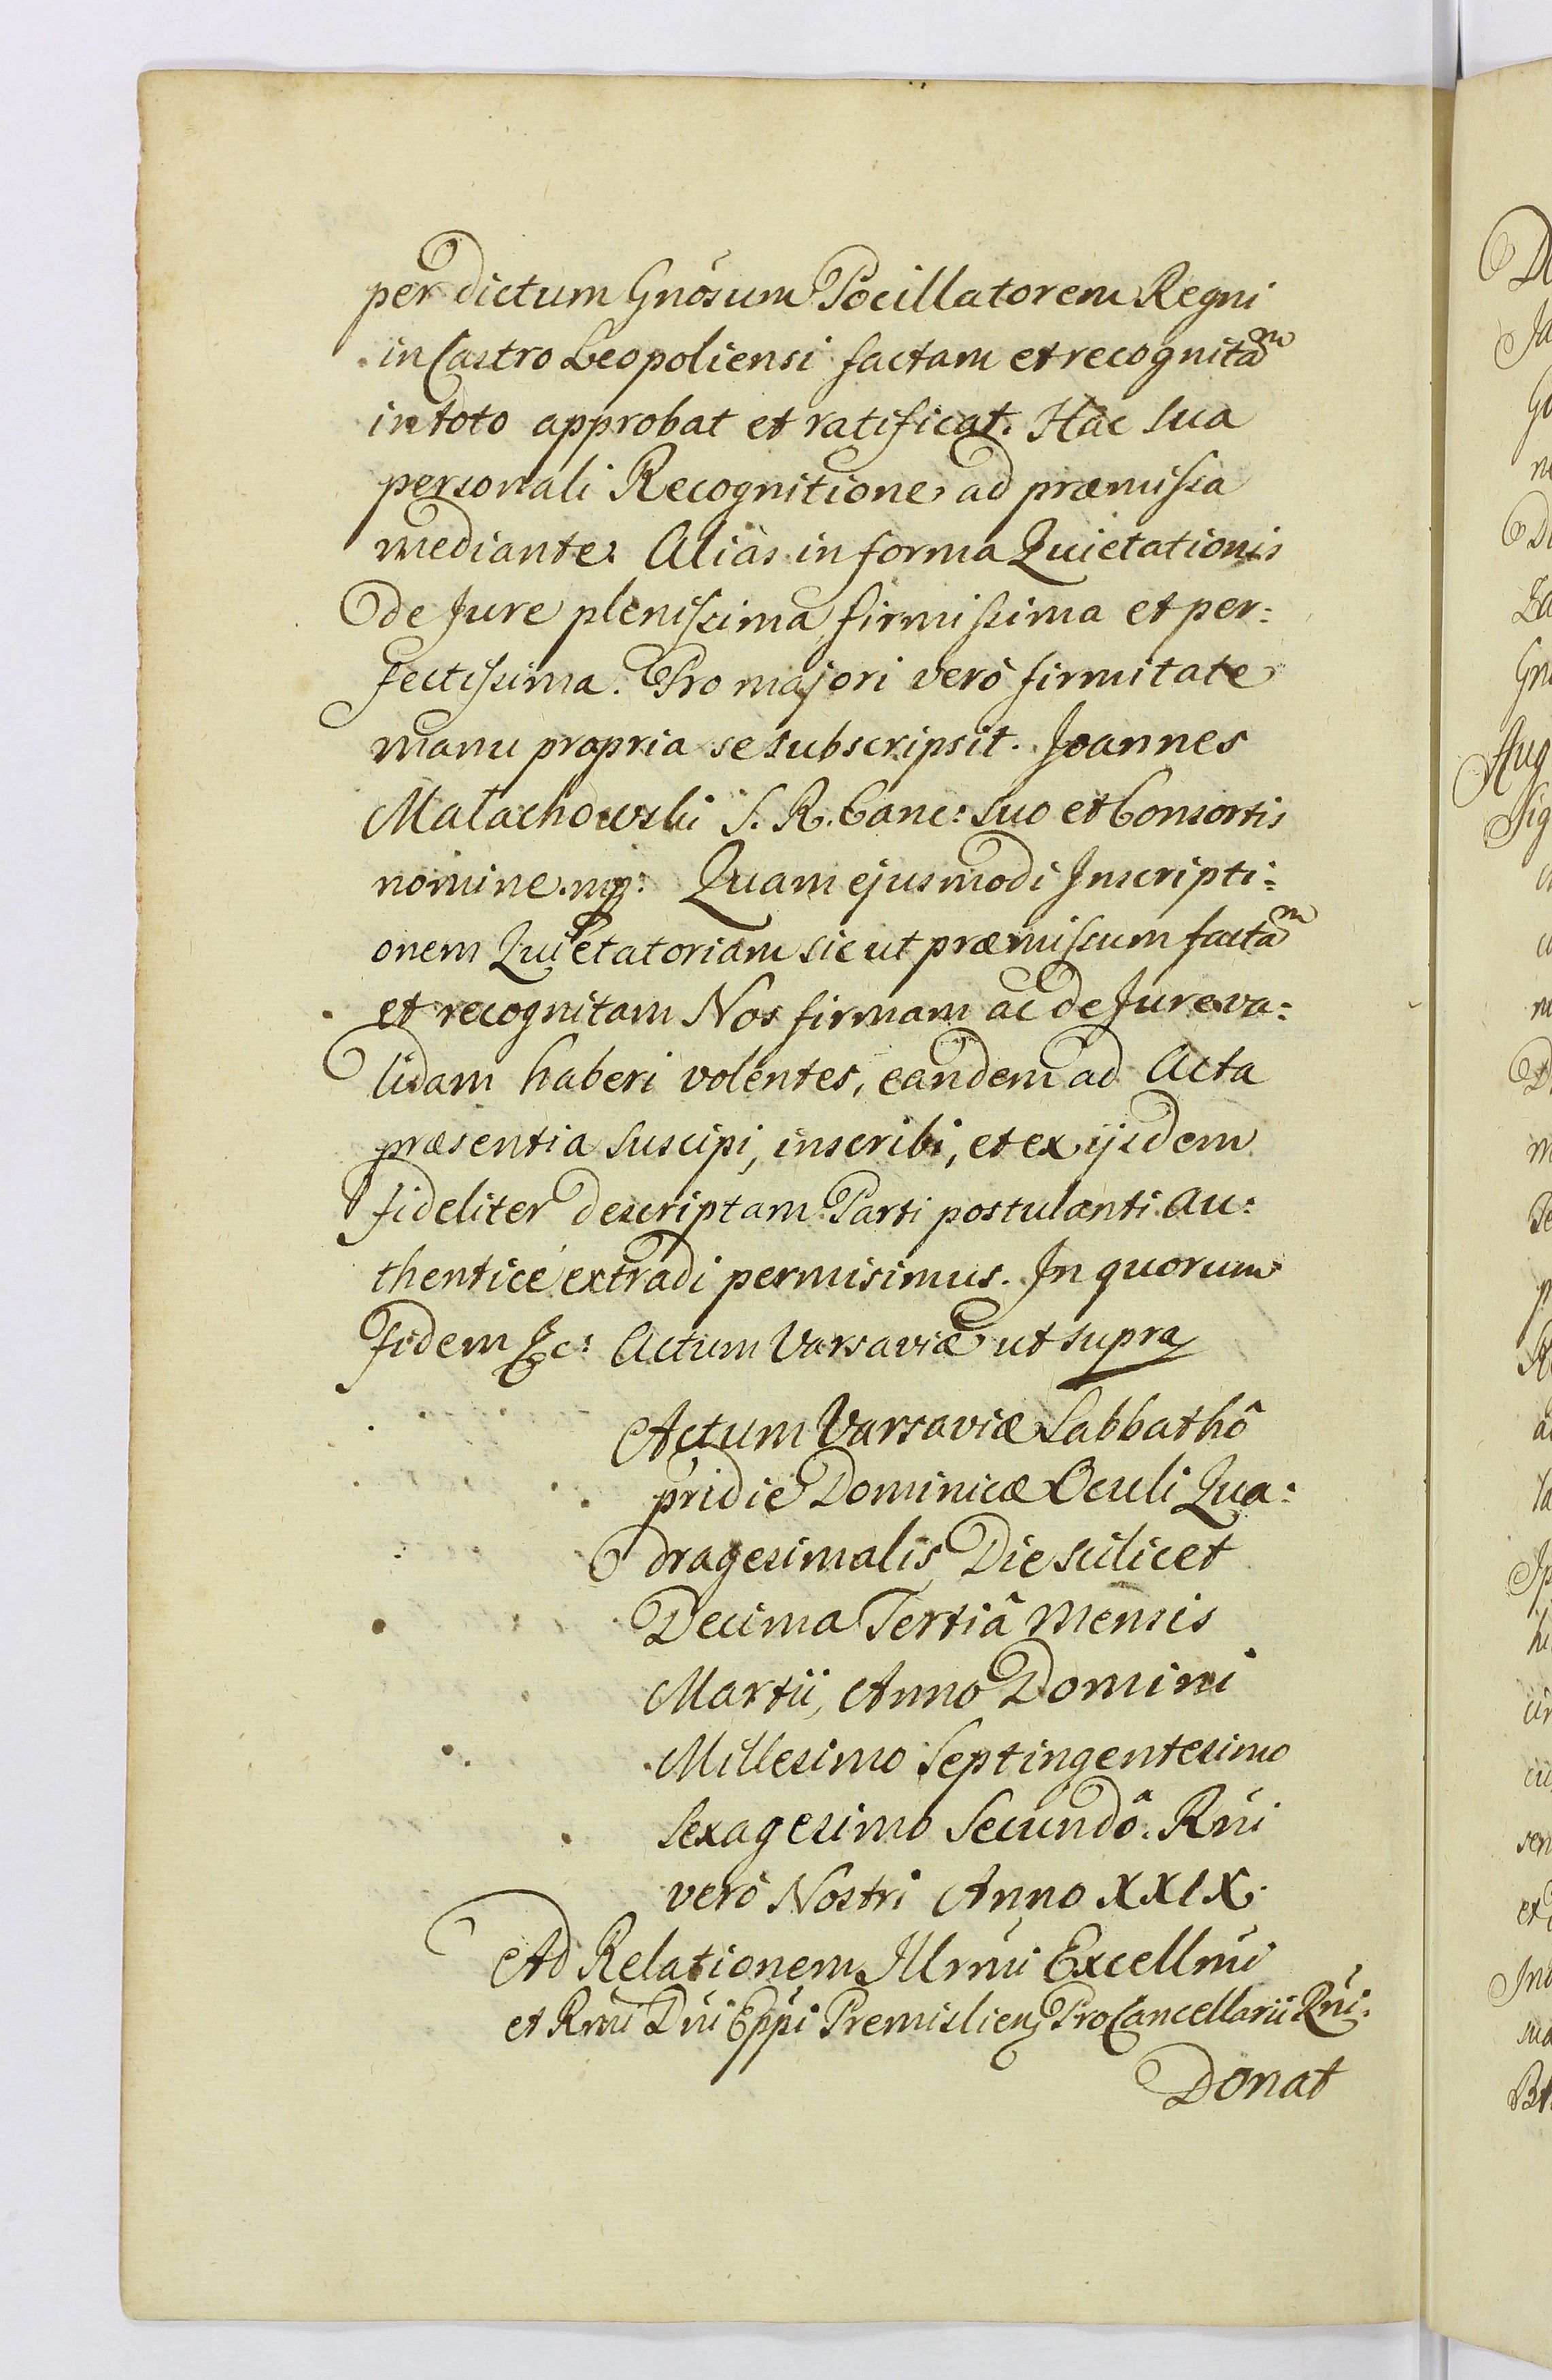 per dictum Gnosum Pocillatorem Regni
in Castro Leopoliensi factam et recognitam
in toto approbat et ratificat. Hac sua
personali Recognitione ad præmissa
mediante. Aliàs in forma Quietationis
de Jure plenissima, firmissima et per:
fectissima. Pro majori verò firmitate
manu propria se subscripsit. Joannes
Małachowski S. R. Canc: suo et Consortis
nomine mp: Quam ejusmodi Inscripti:
onem Quietatoriam sic ut præmissum factam
et recognitam Nos firmam ac de Jure va:
lidam haberi volentes, eandem ad Acta
præsentia suscipi, inscribi, et ex ijsdem
fideliter descriptam Parti postulanti au:
thenticè extradi permisimus. In quorum
fidem &c: Actum Varsaviæ ut supra
Actum Varsaviæ Sabbathô
pridie Dominicæ Oculi Qua:
dragesimalis Die scilicet
Decima Tertiâ Mensis
Martii, Anno Domini
Millesimo Septingentesimo
Sexagesimo Secundô. Rñi
verò Nostri Anno XXIX.
Ad Relationem Illmi Excellmi
et Rmi Dni Eppi Premisliens ProCancellarii Rñi.
Donat
De
Ja
Aug
Sig